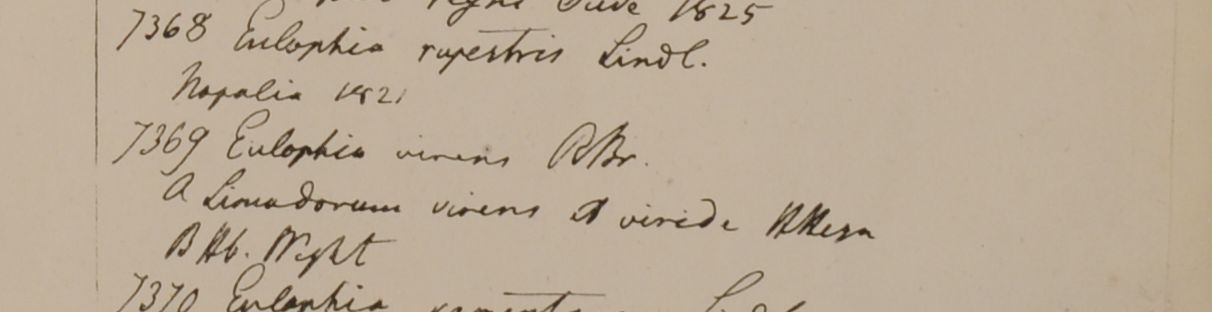 1825
7368 Eulophia rupestris Lindl.
Napalia 1821
7369 Eulophia virens RBr.
A Limadorum virens et viride
B Hb. Wight
7370 Eulophia